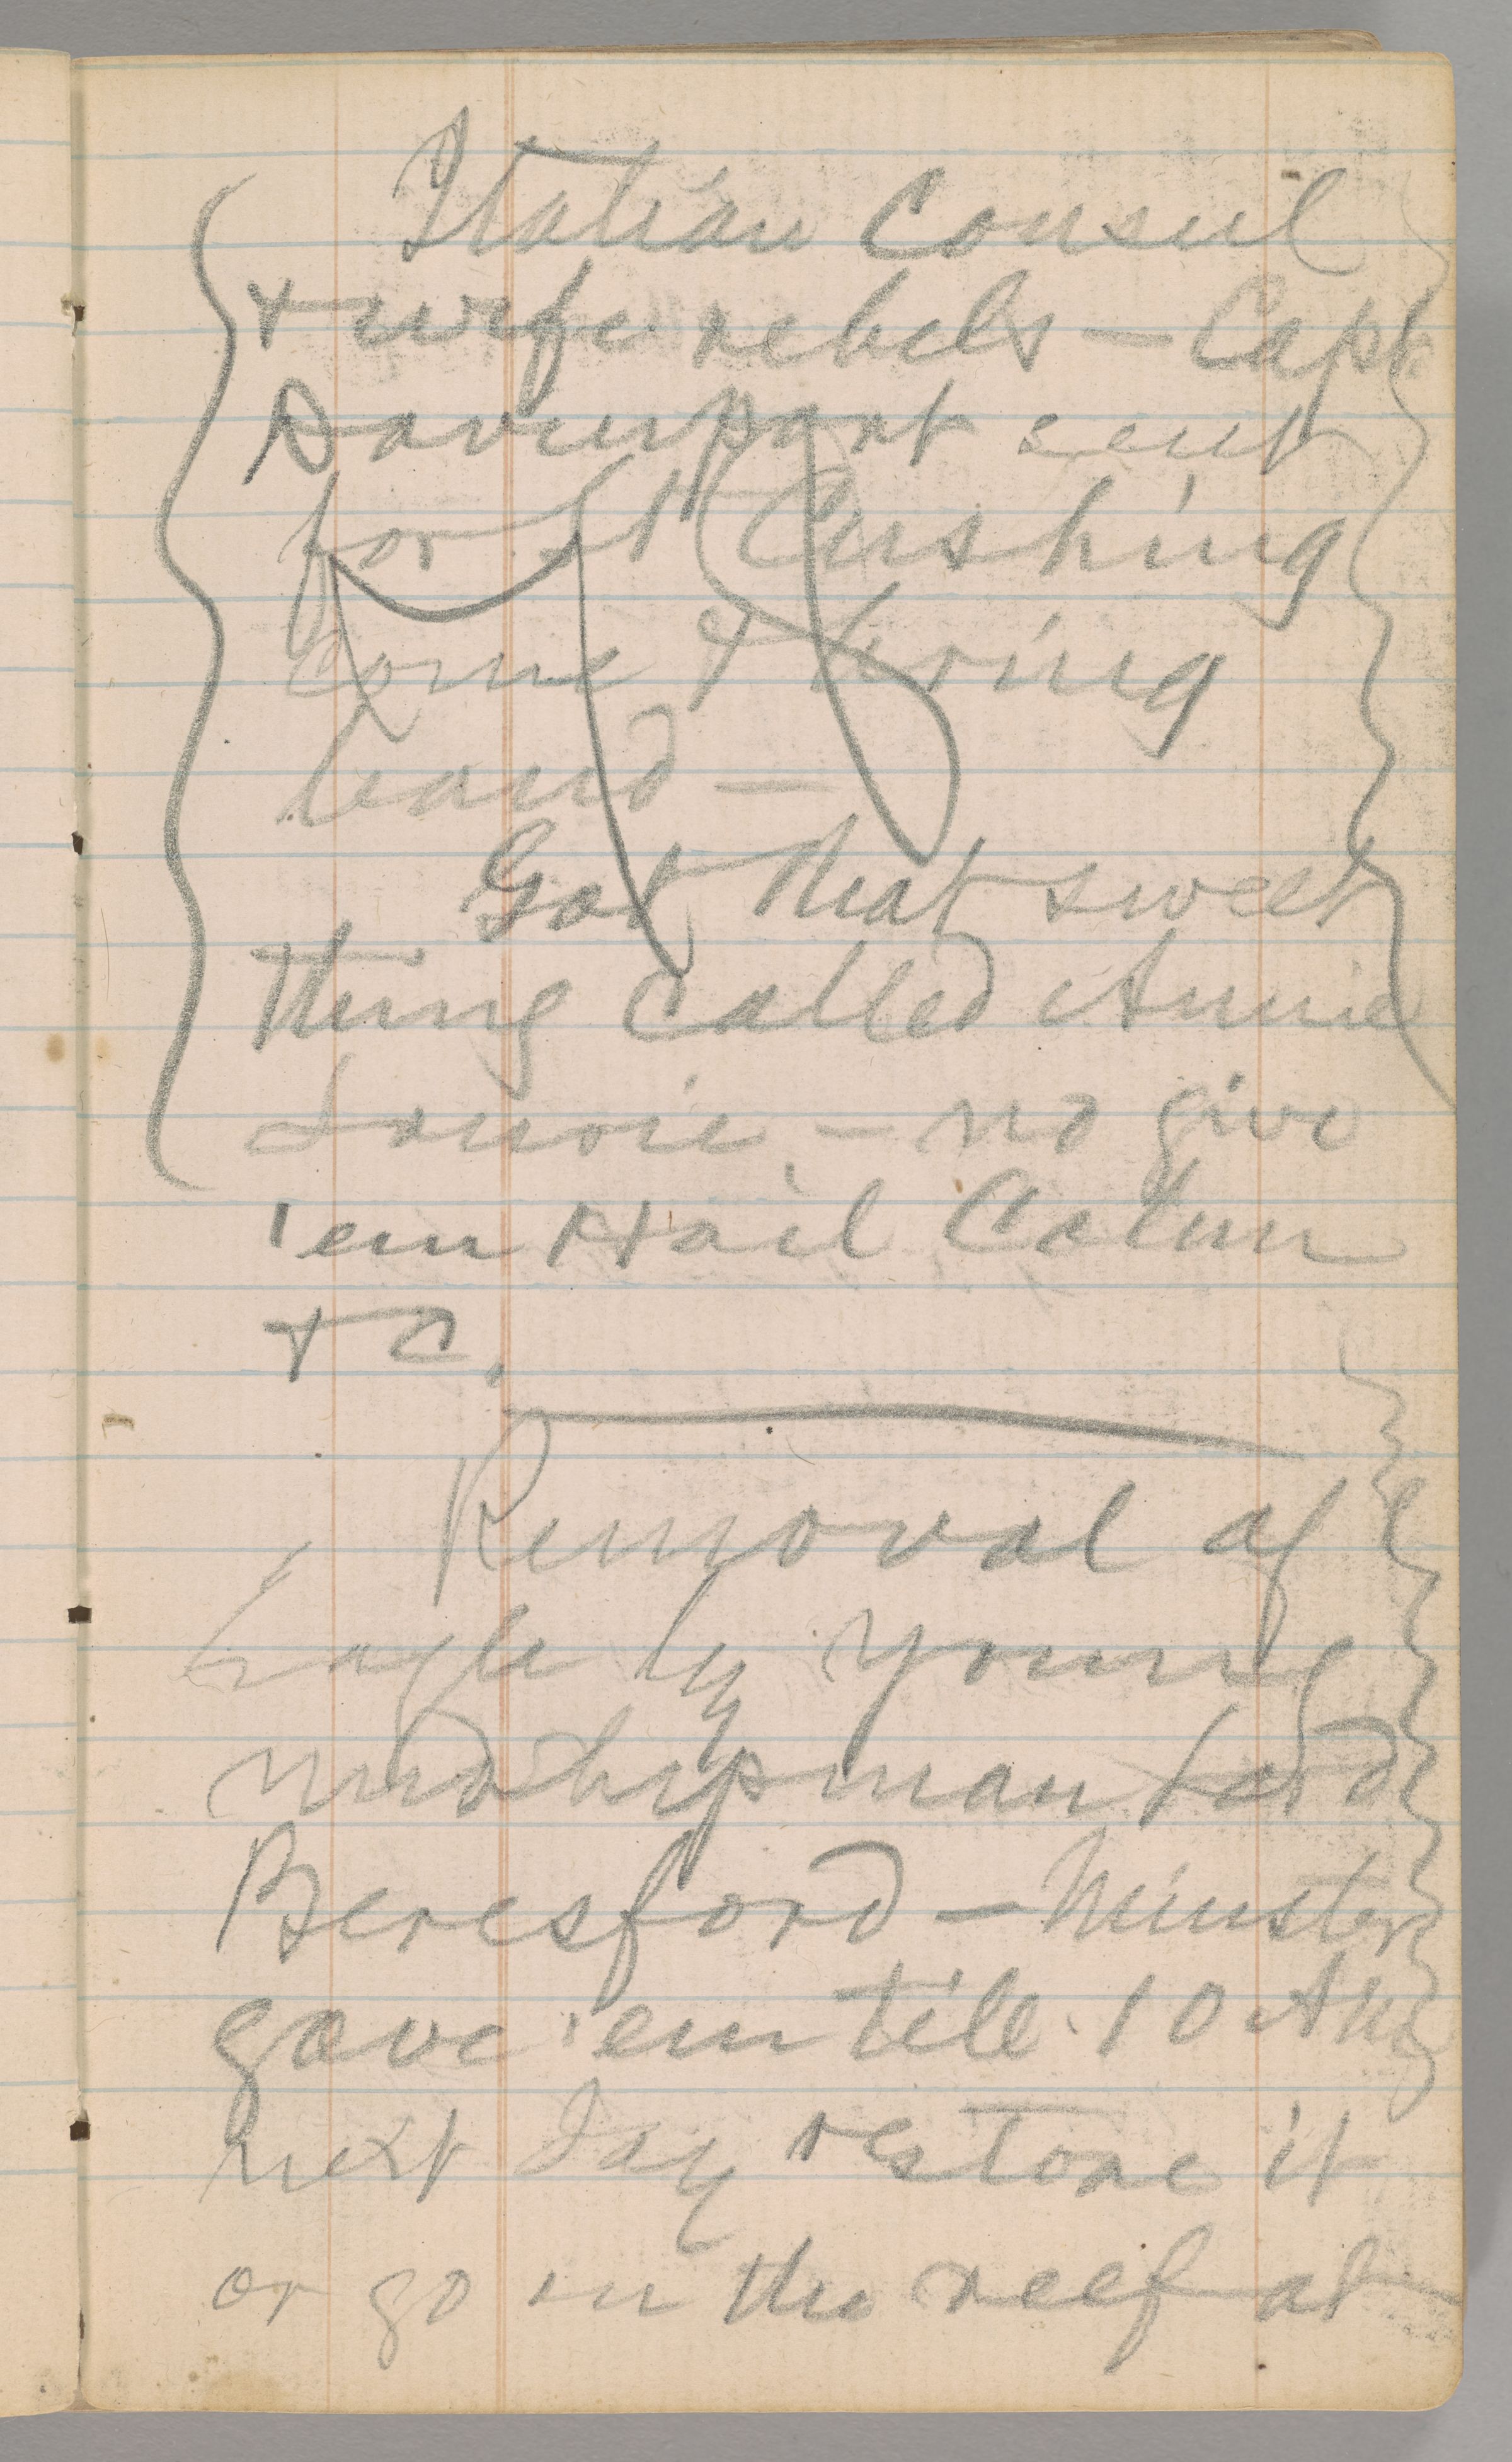 Italian Consul
& wife rebels — Capt
Davenport sent
for Lt Cushing
come & bring
band —
Got that sweet
thing called Annie
Lourie, — no give
'em Hail Colum
& C.
Removal of
Eagle by young
midshipman Lord
Beresford — Minister
gave 'em till 10 AM
next day restore it
or go on the reef at